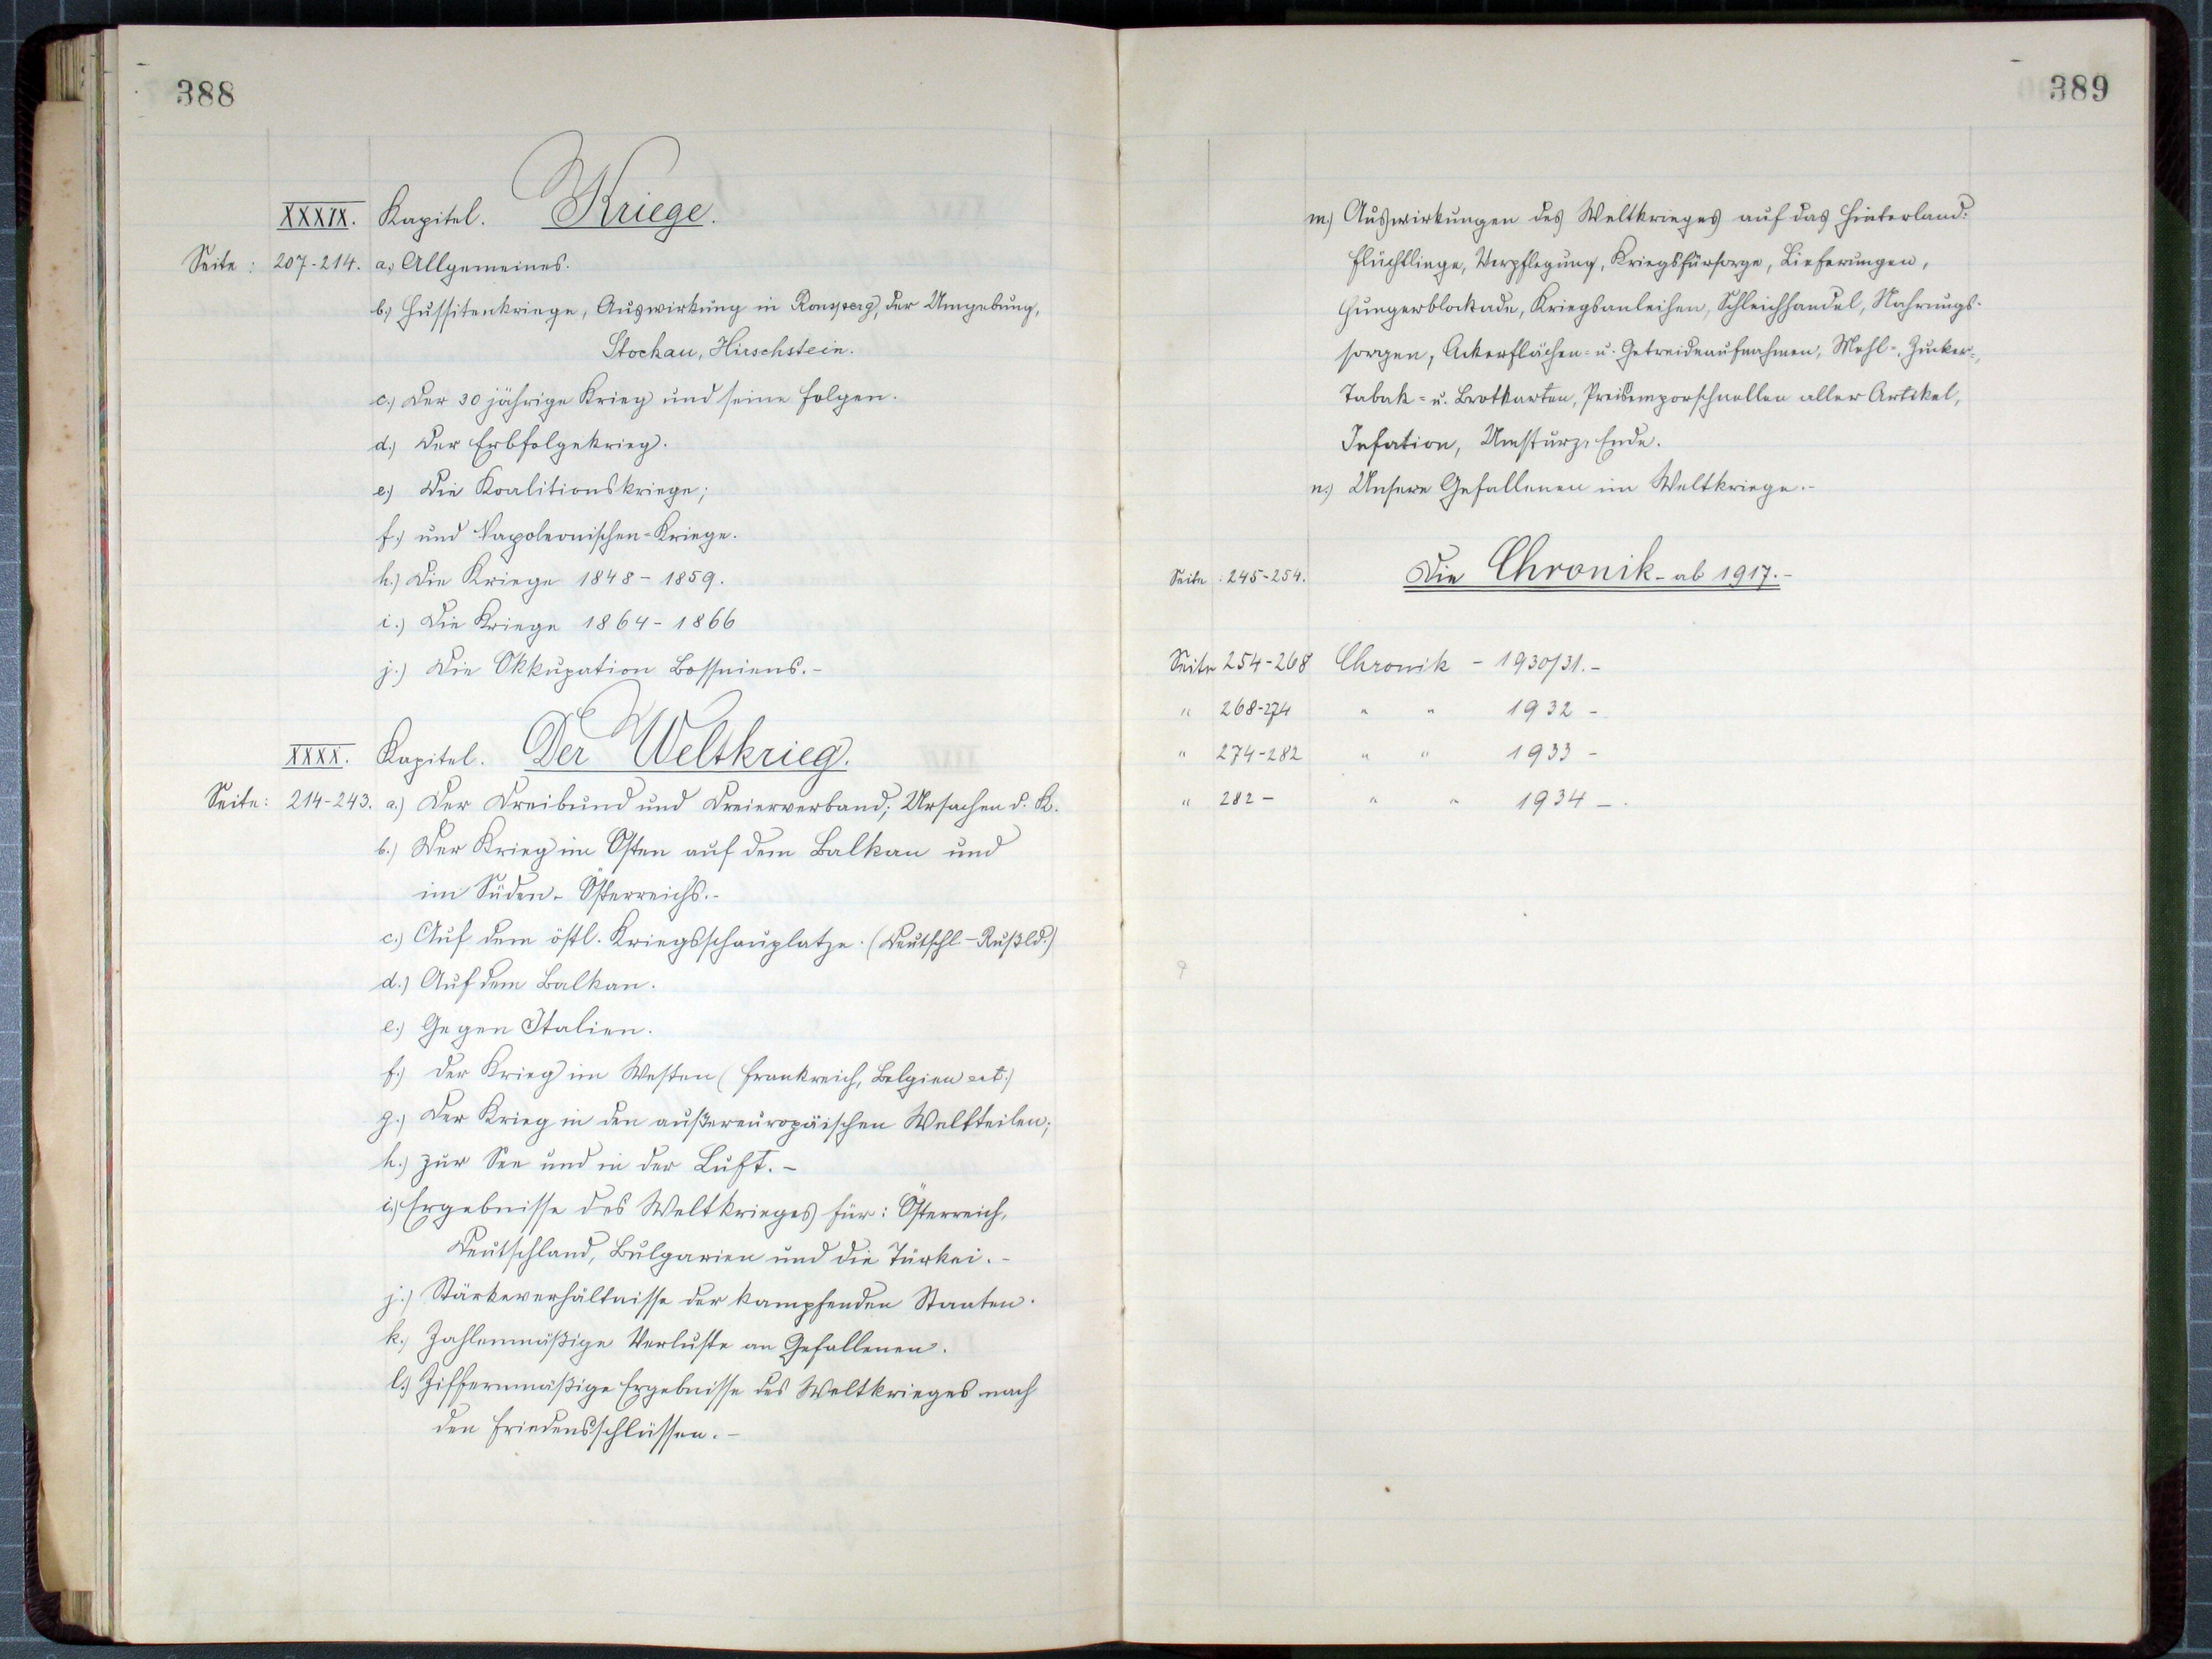 388
XXXIX. Kapitel. Kriege.
Seite : 207-214. a.) Allgemeines.
b.) Hussitenkriege, Auswirkung in Ronsperg, der Umgebung,
Stockau, Hirschstein.
c.) Der 30 jährige Krieg und seine Folgen.
d.) Der Erbfolgekrieg.
e.) Die Koalitionskriege;
f.) und Napoleonischen-Kriege.
h.) Die Kriege 1848 - 1859.
i.) Die Kriege 1864 - 1866
j.) Die Okkupation Bossniens.-
XXXX. Kapitel. Der Weltkrieg.
Seite: 214-243. a.) Der Dreibund und Dreierverband; Ursachen d. K.
b.) Der Krieg im Osten auf dem Balkan und
im Süden- Österreichs.-
c.) Auf dem östl. Kriegsschauplatze. (Deutschl.-Rußld.)
d.) Auf dem Balkan.
e.) Gegen Italien.
f.) Der Krieg im Westen (Frankreich, Belgien ect.)
g.) Der Krieg in den außereuropäischen Weltteilen;
h.) zur See und in der Luft.-
i.) Ergebnisse des Weltkrieges für: Österreich,
Deutschland, Bulgarien und die Türkei.-
j.) Stärkeverhältnisse der kampfenden Staaten.
k.) Zahlenmäßige Verluste an Gefallenen.
l.) Ziffernmäßige Ergebnisse des Weltkrieges nach
den Friedensschlüssen.-
389
m.) Auswirkungen des Weltkrieges auf das Hinterland:
Flüchtlinge, Verpflegung, Kriegsfürsorge, Lieferungen,
Hungerblockade, Kriegsanleihen, Schleichhandel, Nahrungs-
sorgen, Ackerflächen= u. Getreideaufnahmen, Mehl-, Zucker=,
Tabak= u. Brotkarten, Preisemporschnellen aller Artikel,
Infation, Umsturz, Ende.
n.) Unsere Gefallenen im Weltkriege.-
Seite : 245-254. Die Chronik - ab 1917.-
Seite 254-268 Chronik - 1930/31.-
" 268-274 " " 1932 -
" 274-282 " " 1933 -
" 282 - " " 1934 -.